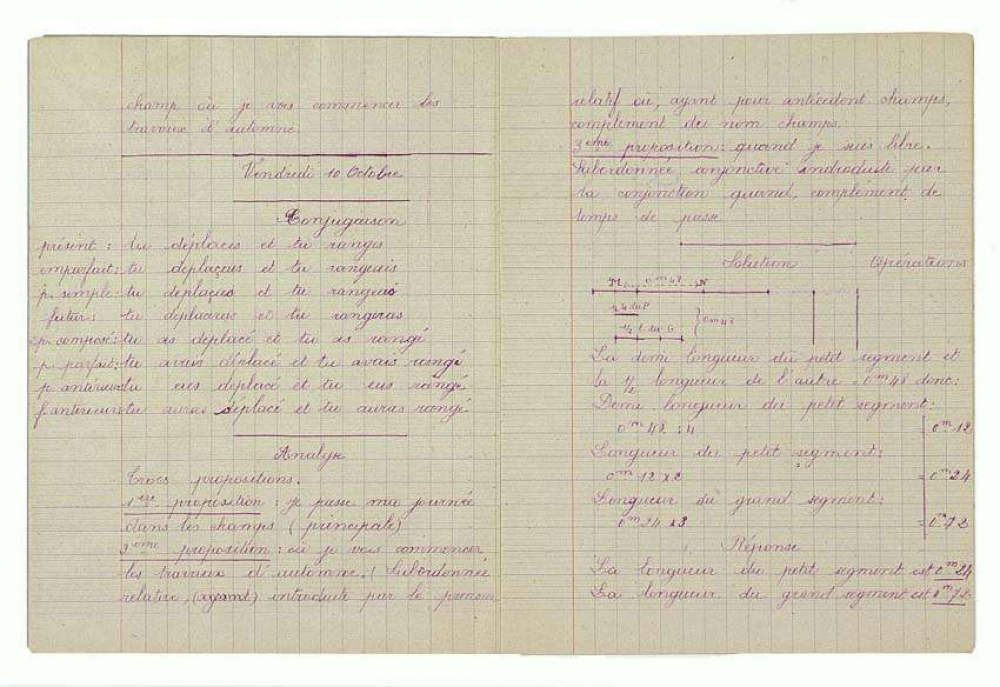 champ où je vais commencer les
travaux d'automne.
Vendredi 10 Octobre
Conjugaison
présent : tu déplaces et tu ranges
imparfait : tu déplaçais et tu rangeais
p. simple : tu déplaças et tu rangeas
futur : tu déplaceras et tu rangeras
p. composé : tu as déplacé et tu as rangé
p. parfait : tu avais déplacé et tu avais rangé
p. antérieur tu eus déplacé et tu eus rangé
f. antérieur tu auras déplacé et tu auras rangé
Analyse
Trois propositions.
1ère proposition : je passe ma journée
dans les champs (principale)
2ème proposition : où je vais commencer
les travaux d'automne. (Subordonnée
relative, (ayant) introduite par le pronom
relatif où, ayant pour antécédent champs,
complément du nom champs.
3ème proposition : quand je suis libre.
Subordonnée conjonctive introduite par
la conjonction quand, complément de
temps de passe
Solution Opérations
M 0m48 N
0m48
La demi longueur du petit segment et
la 1/2 longueur de l'autre = 0m48 donc :
Demi longueur du petit segment :
0m48 : 4 = 0m12
Longueur du petit segment :
0m12 x 2 = 0m24
Longueur du grand segment :
0m24 x 3 = 0m72
Réponse
La longueur du petit segment est 0m24
La longueur du grand segment est 0m72